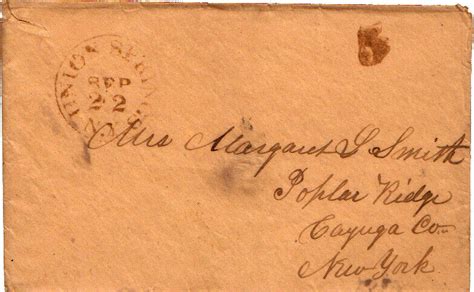 UNION SPRINGS
SEP
22
Mrs Margaret L Smith
Poplar Ridge
Cayuga Co
New York